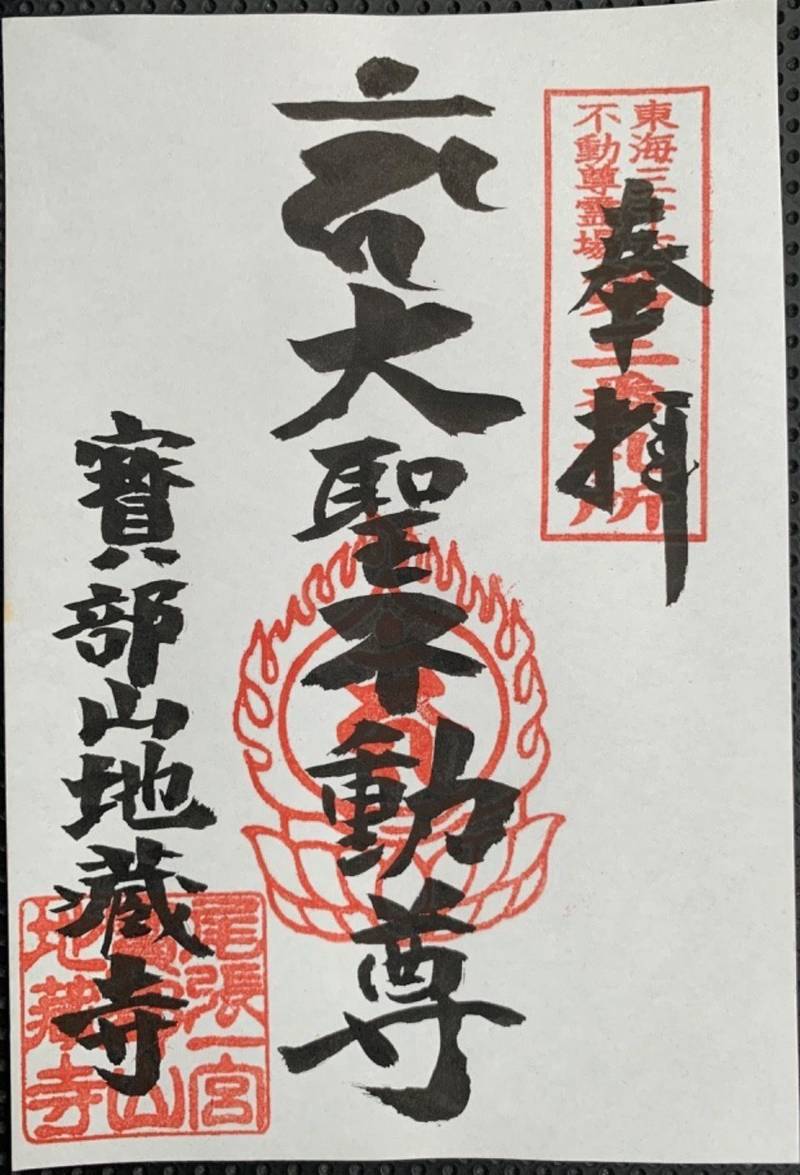 奉拝
東海三十六
不動尊霊場
第二番札所
大聖不動尊
寳部山地蔵寺
尾張一宮
寳部山
地蔵寺